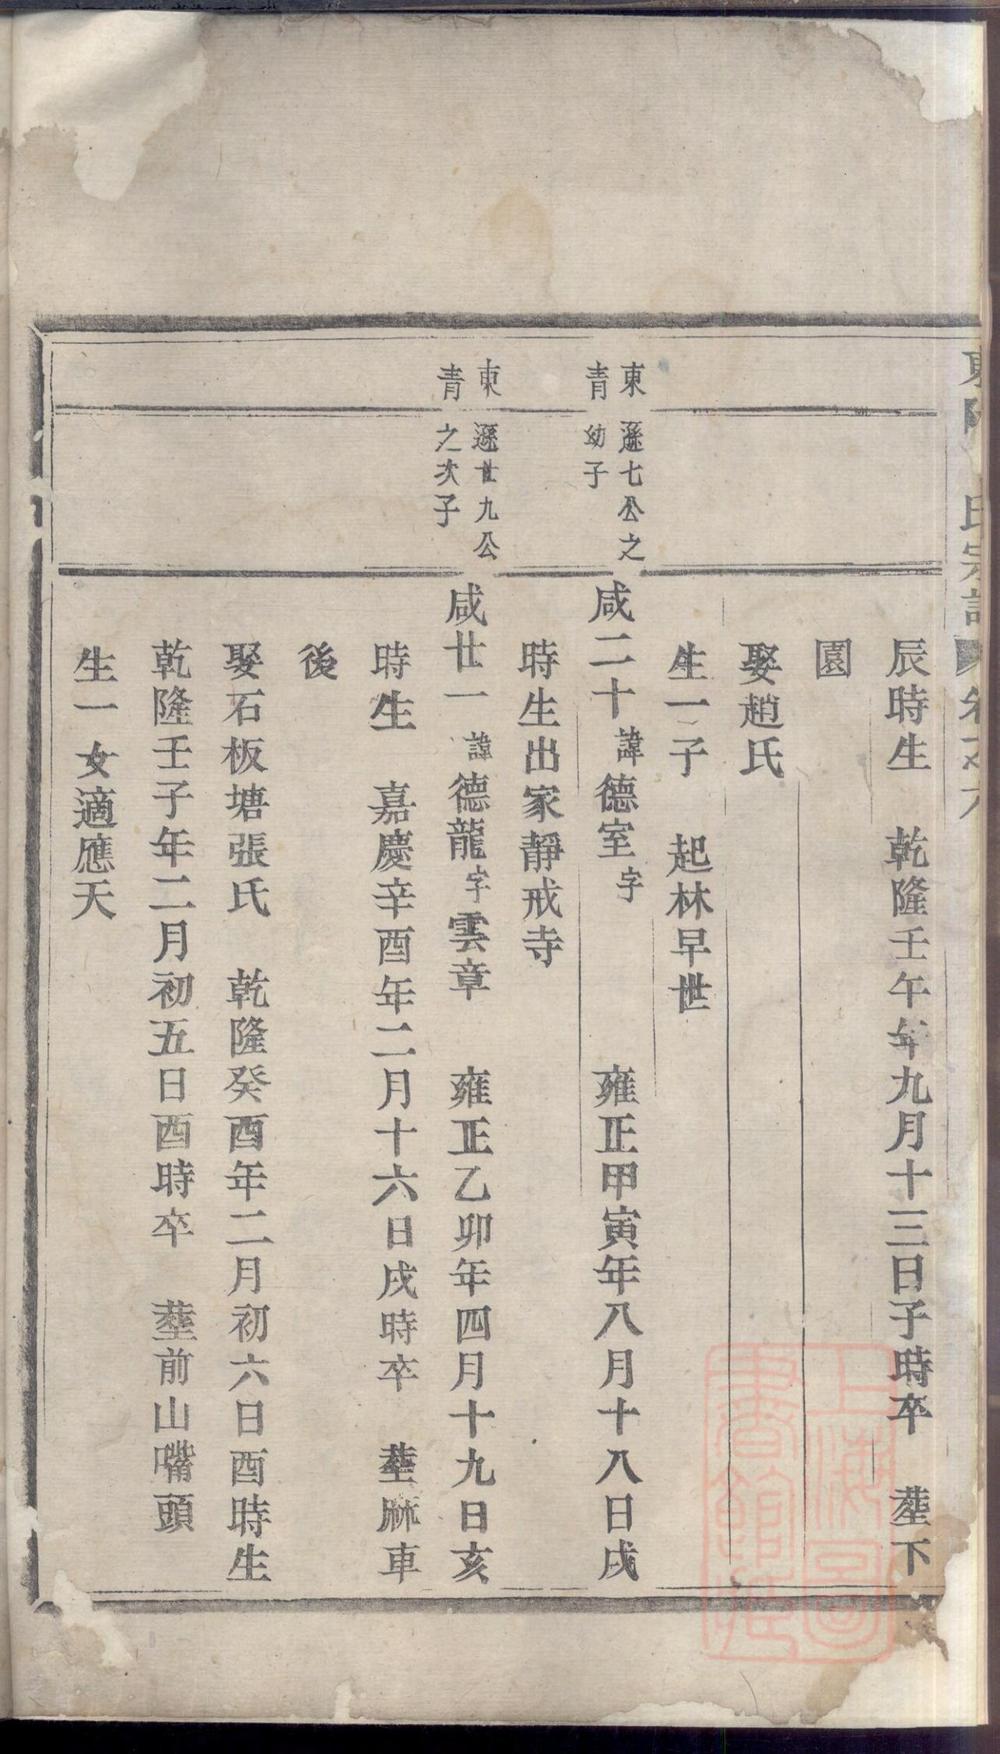 辰時生 乾隆壬午年九月十三日子時卒 塟下
園
娶趙氏
生一子 起林早世
東青
遜七公之幼子
咸二十 諱德室字 雍正甲寅年八月十八日戌
時生出家靜戒寺
東青
遜廿九公之次子
咸廿一 諱德龍字雲章 雍正乙卯年四月十九日亥
時生 嘉慶辛酉年二月十六日戌時卒 塟麻車
後
娶石板塘張氏 乾隆癸酉年二月初六日酉時生
乾隆壬子年二月初五日酉時卒 塟前山嘴頭
生一女適應天
上海圖書館藏